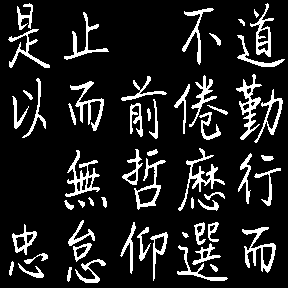 道勤行而
不倦歷選
前哲仰
止而無怠
是以忠